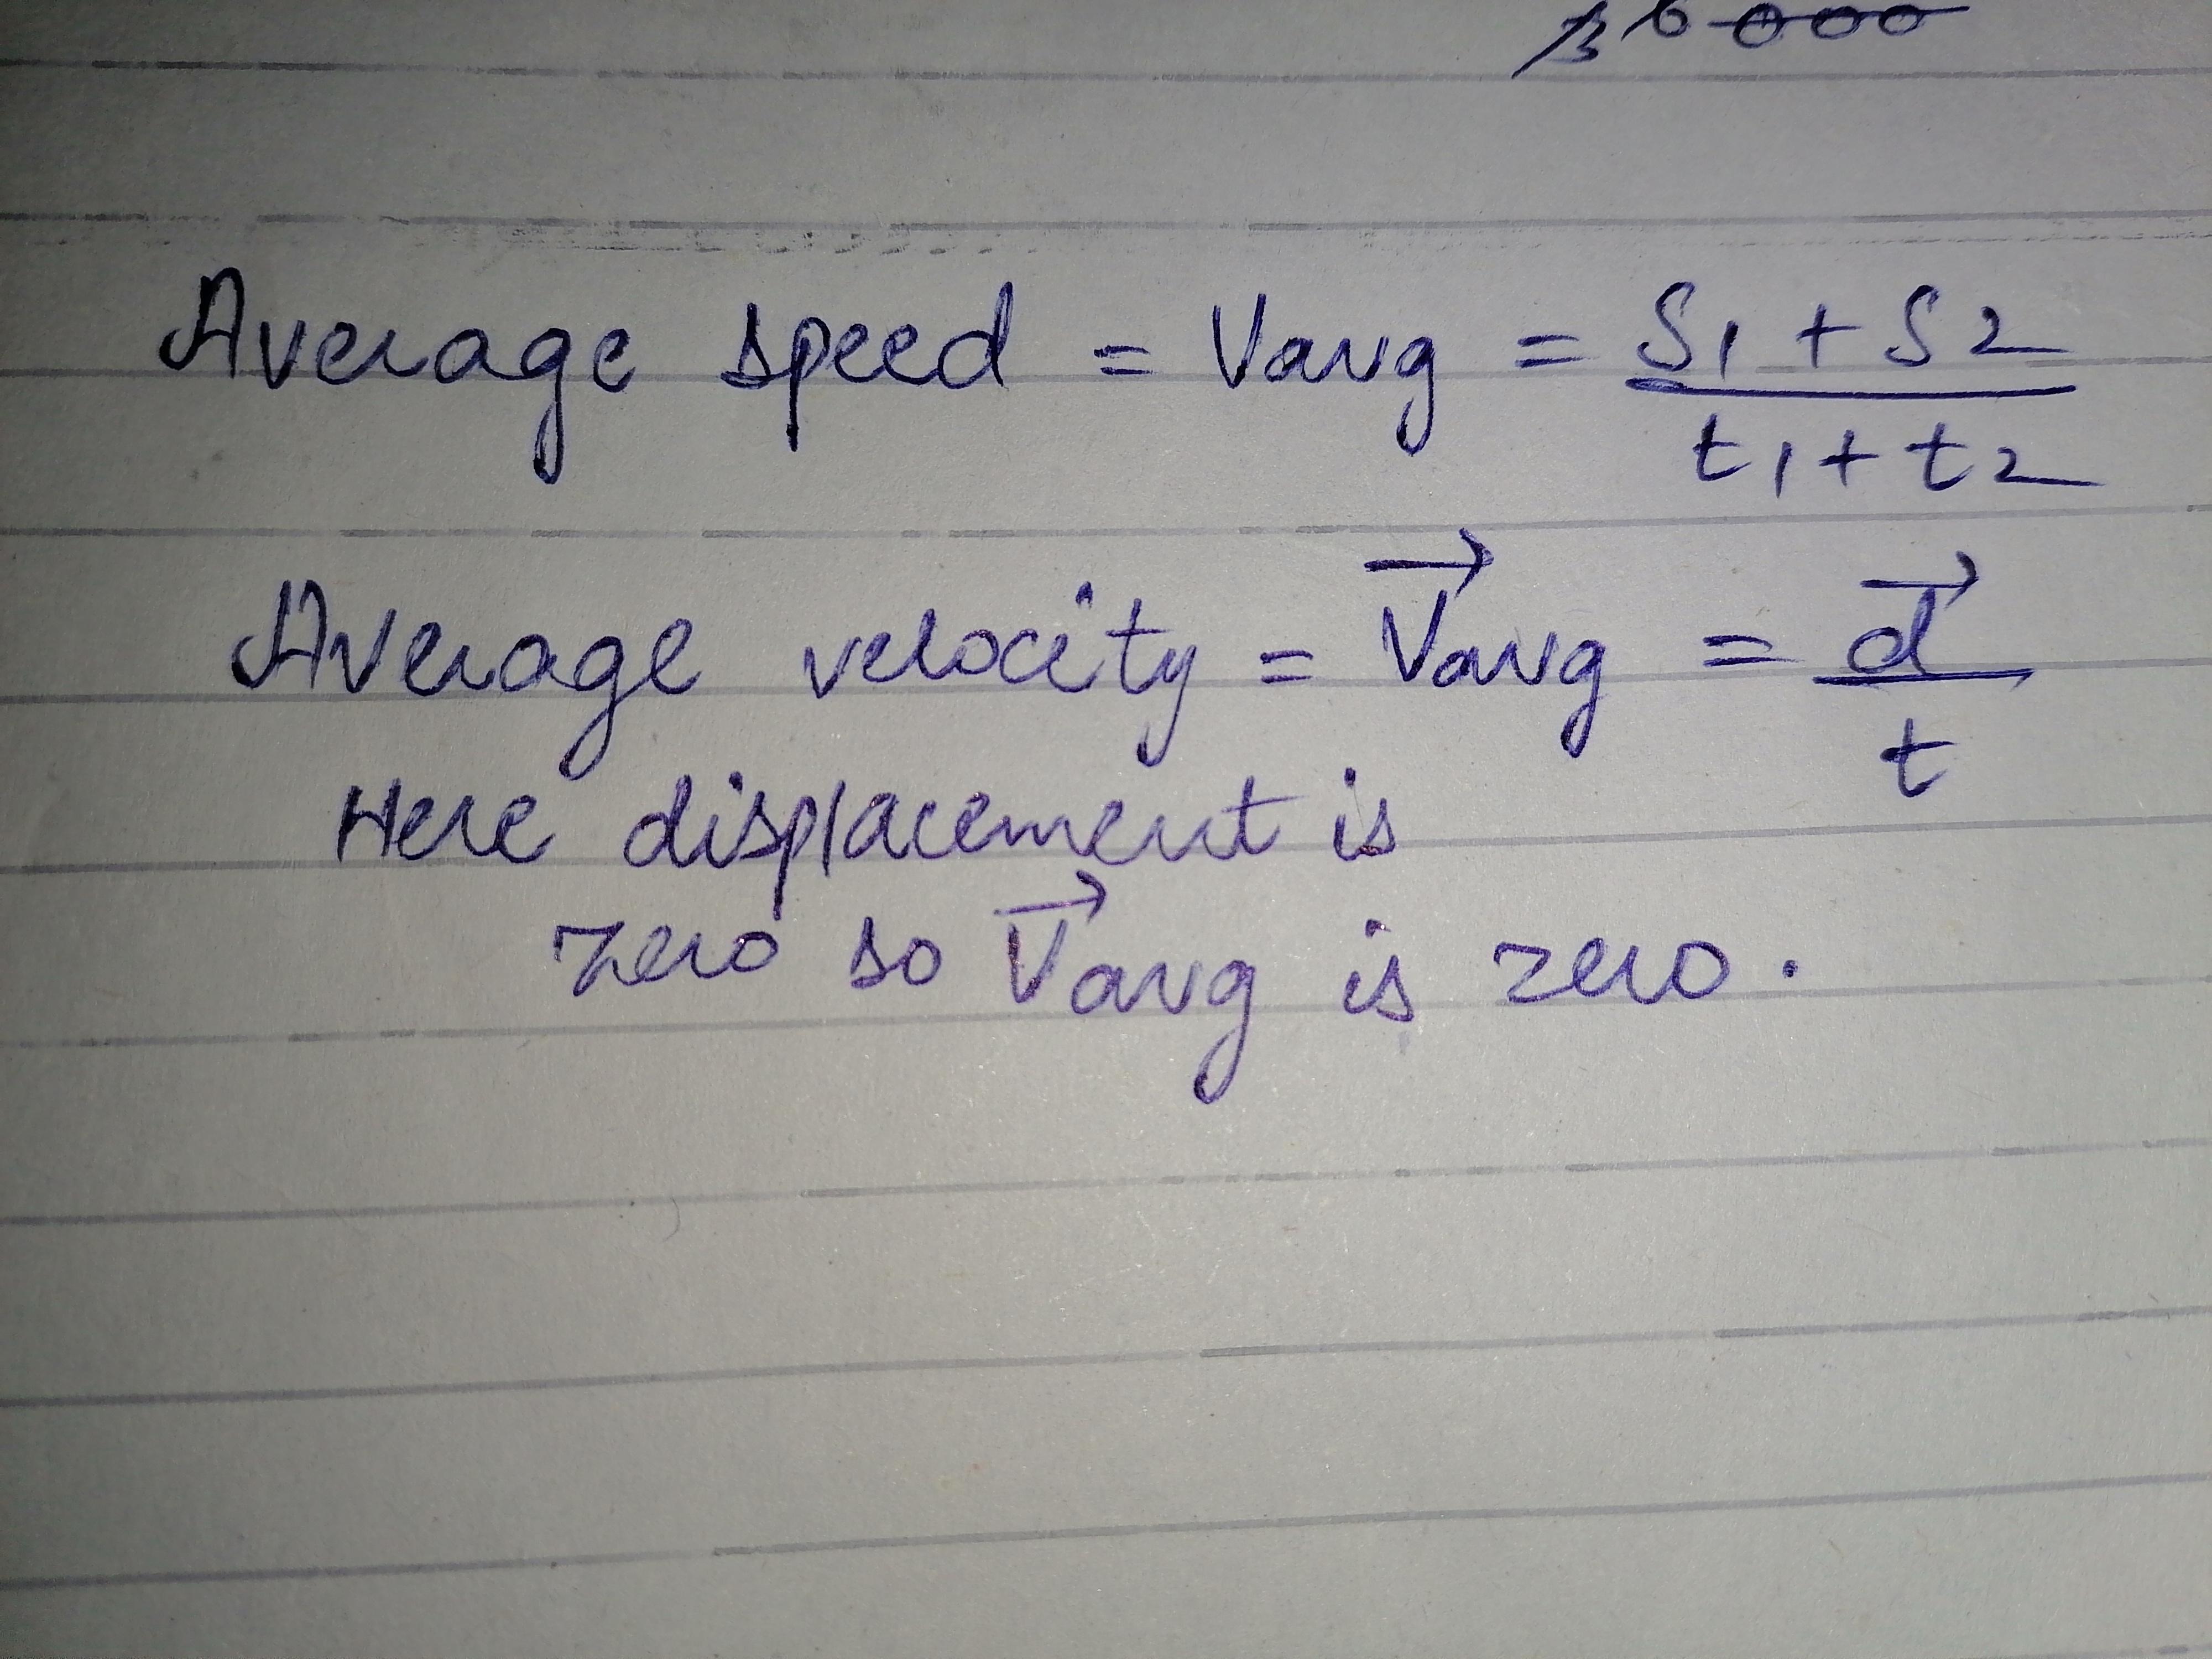 Average speed = Vavg = S1 + S2 / t1 + t2
Average velocity = V⃗avg = d⃗ / t
Here displacement is
zero so V⃗avg is zero.